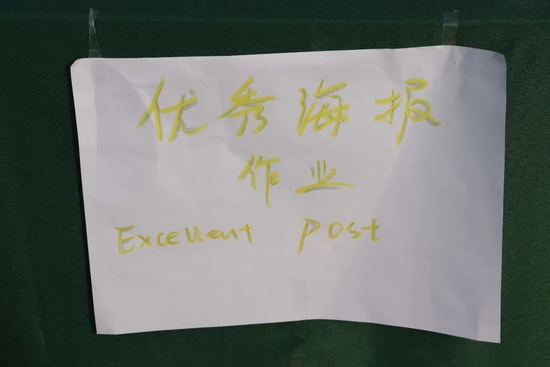 优秀海报
作业
Excellent post